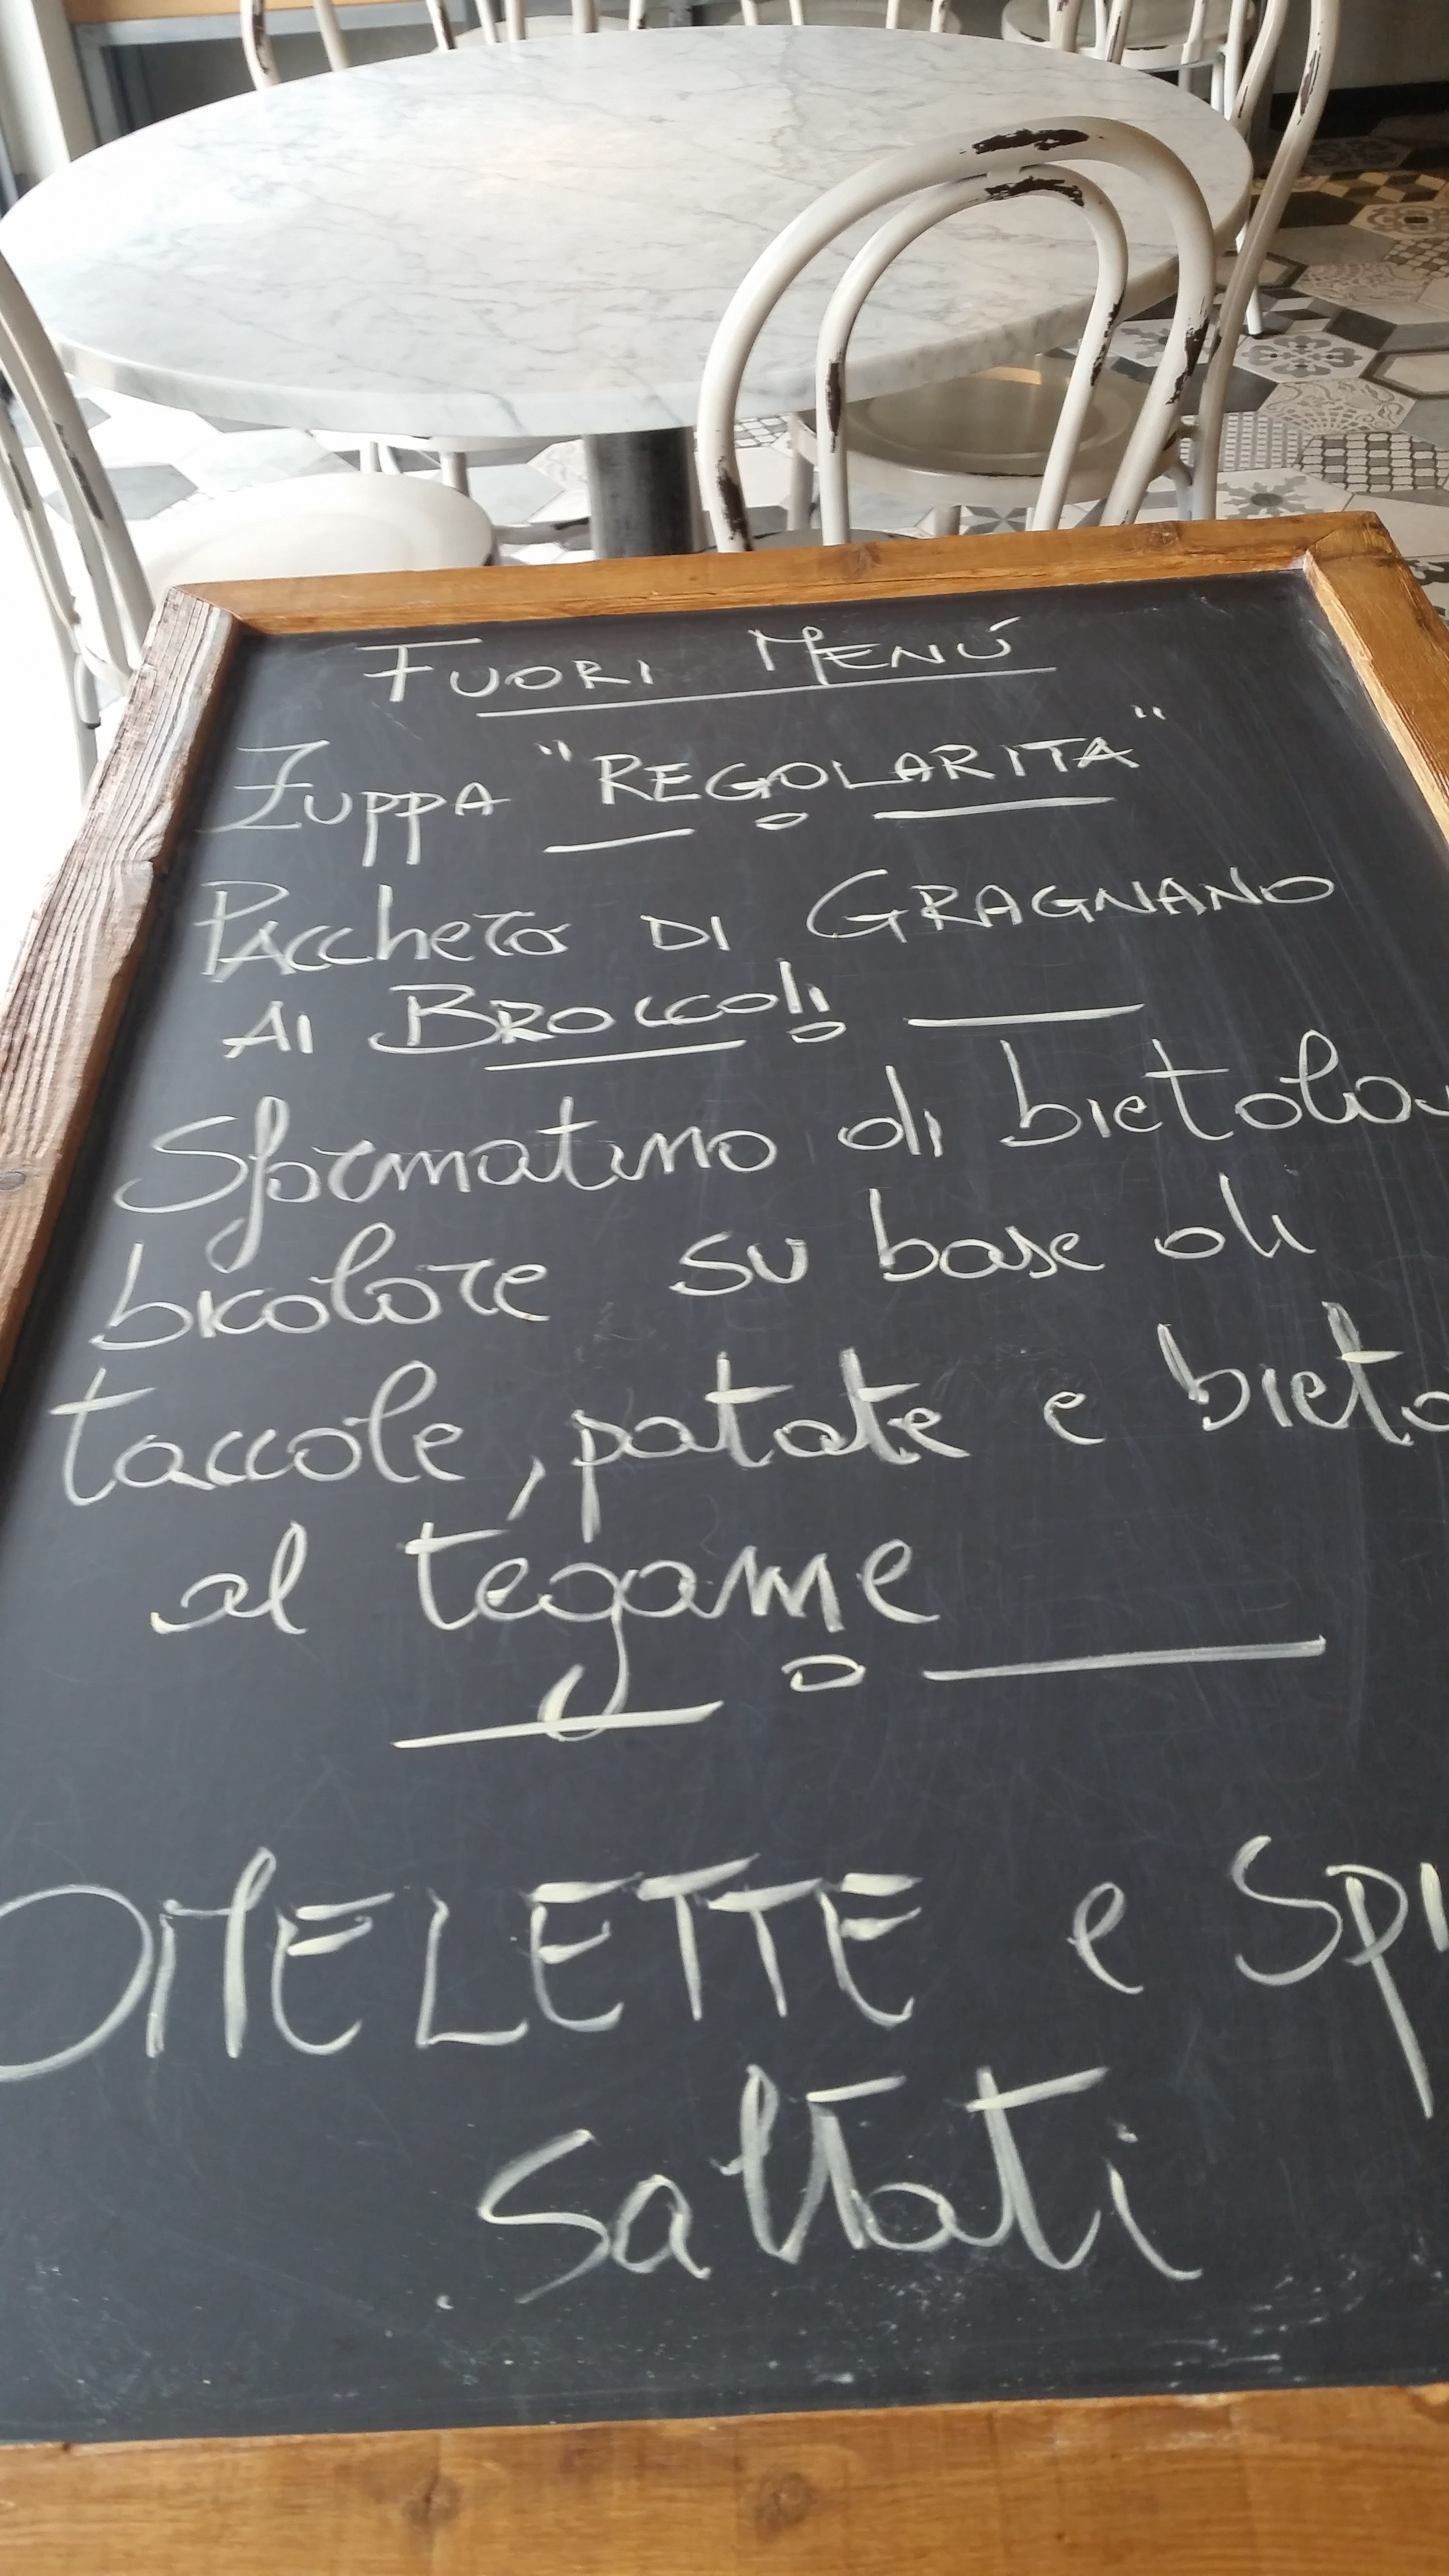 FUORI MENÚ
ZUPPA "REGOLARITA"
PAccheTO DI GRAGNANO
AI BROccoli
Sformatino di bietola
bicolore su base di
taccole, patate e bieto
al tegame
OMELETTE e Spi
Saltati